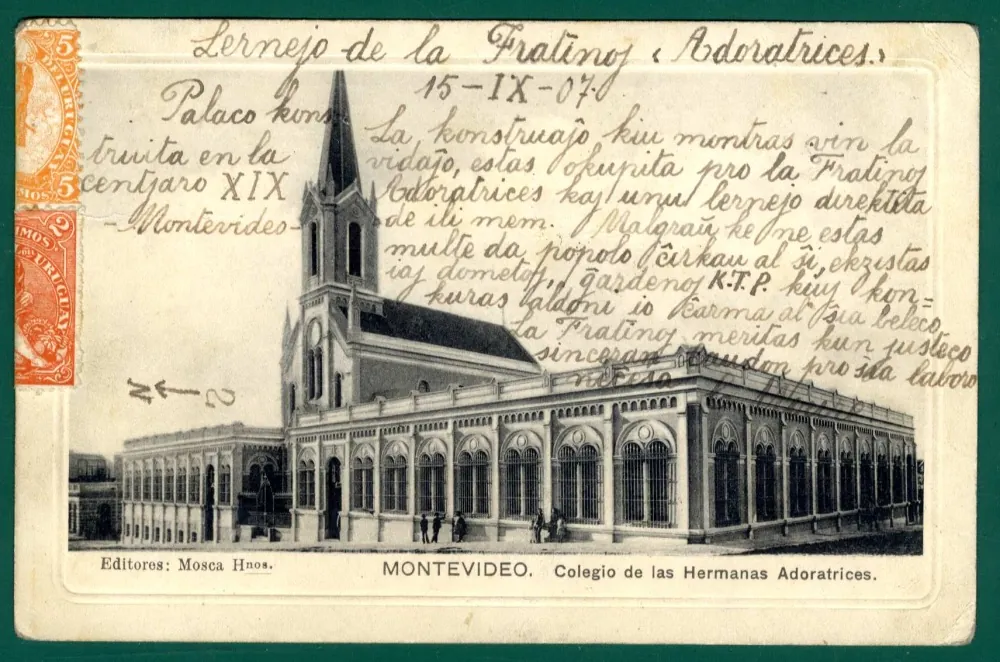 Lernejo de la Fratinoj "Adoratrices"
15-IX-07.
Palaco kons
truita en la
centjaro XIX
- Montevideo -
La konstruaĵo kiu montras vin la
vidaĵo, estas okupita pro la Fratinoj
Adoratrices kaj unu lernejo direktita
de ili mem. Malgraŭ ke ne estas
multe da popolo ĉirkau al ŝi, ekzistas
iaj dometoj, ĝardenoj K.T.P. kiuj kon=
kuras aldoni io ĉarma al ŝia beleco,
La Fratinoj meritas kun justeco
sinceran laudon pro sia laboro
5
DEL URUGUAY
5
MOS
2
MOS
URUGUAY
N
S
Editores: Mosca Hnos.
MONTEVIDEO. Colegio de las Hermanas Adoratrices.